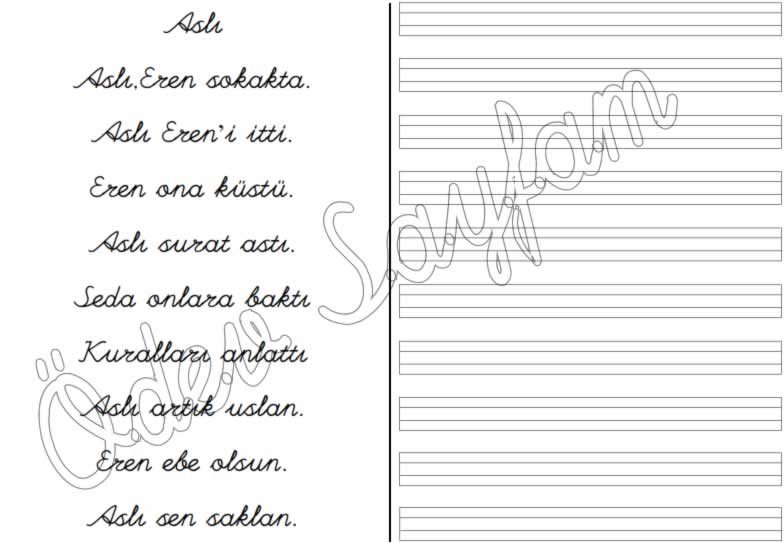 Aslı
Aslı,Eren sokakta.
Aslı Eren'i itti.
Eren ona küstü.
Aslı surat astı.
Seda onlara baktı
Kuralları anlattı
Aslı artık uslan.
Eren ebe olsun.
Aslı sen saklan.
Ödev Sayfam